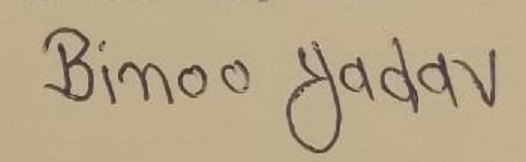 Binoo Yadav